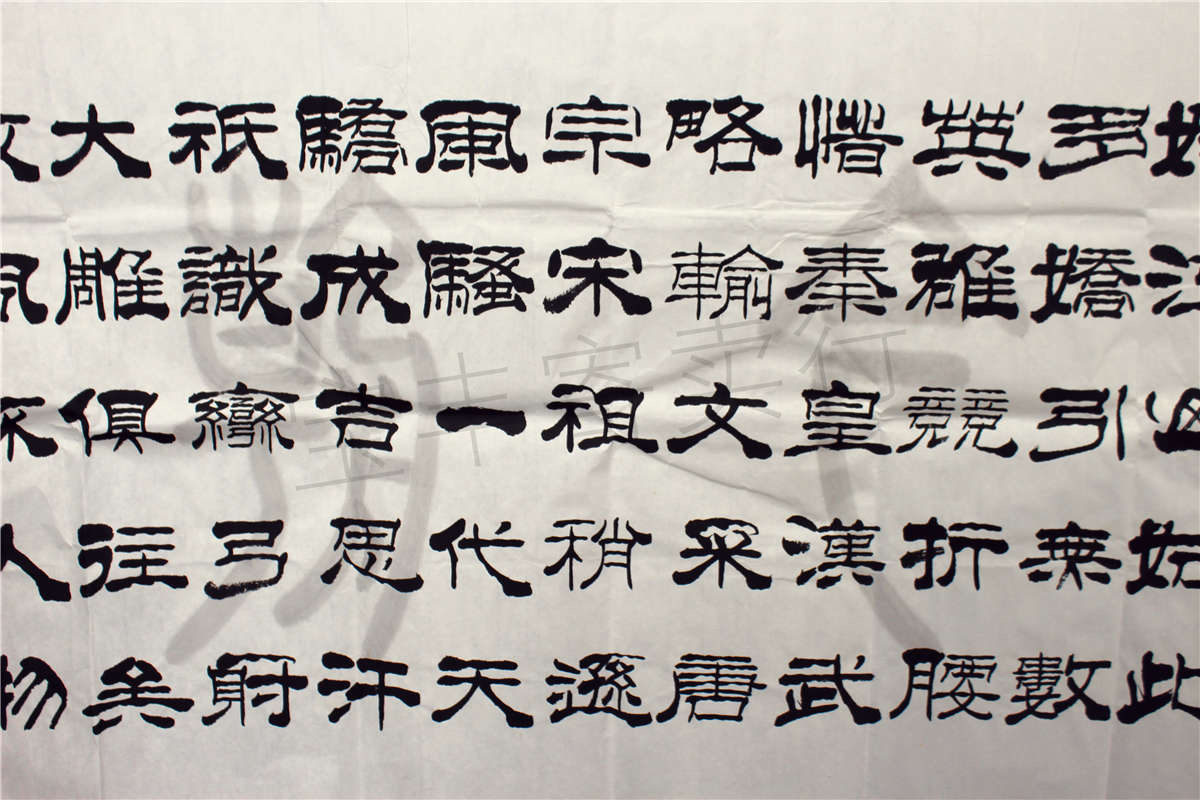 嬈江山如此
多嬌引無數
英雄競折腰
惜秦皇漢武
略輸文采唐
宗宋祖稍遜
風騷一代天
驕成吉思汗
祇識彎弓射
大雕俱往矣
數風流人物
宝丰寄卖行